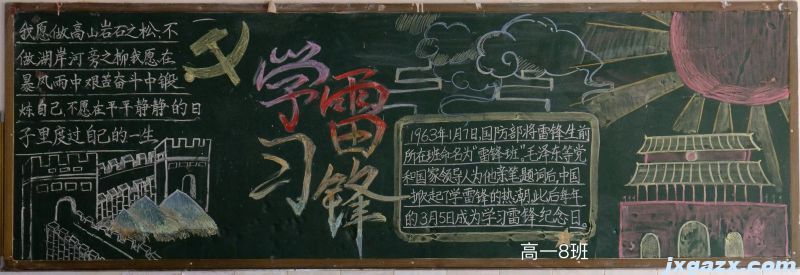 我愿做高山岩石之松,不
做湖岸河旁之柳我愿在
暴风雨中艰苦奋斗中锻
炼自己,不愿在平平静静的日
子里度过自己的一生
学习
雷锋
1963年1月7日,国防部将雷锋生前
所在班命名为“雷锋班”,毛泽东等党
和国家领导人为他亲笔题词后,中国
掀起了学雷锋的热潮,此后每年
的3月5日成为学习雷锋纪念日。
高一8班
ixgazx.com